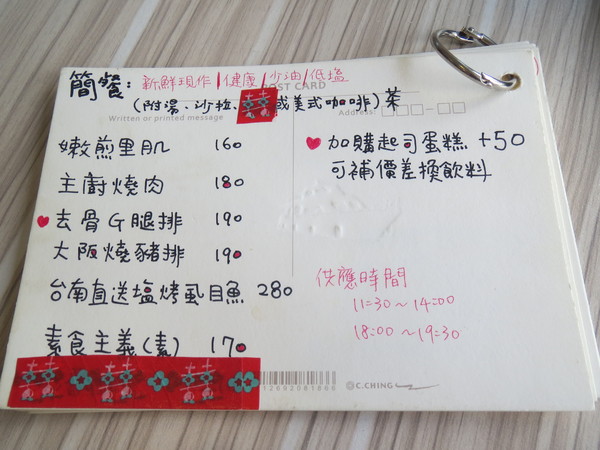 簡餐：新鮮現作/健康/少油/低塩
POST CARD
(附湯、沙拉、囍或美式咖啡)茶
Written or printed message
Address:
嫩煎里肌 160
主廚燒肉 180
♥去骨G腿排 190
大阪燒豬排 190
台南直送塩烤虱目魚 280
素食主義(素) 170
♥加購起司蛋糕 +50
可補價差換飲料
供應時間
11:30～14:00
18:00～19:30
囍 囍 囍
C.CHING